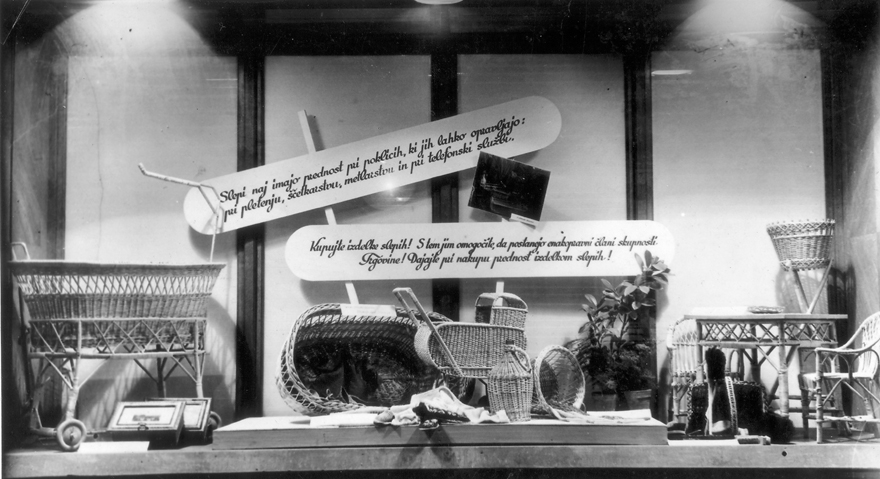 Slepi naj imajo prednost pri poklicih, ki jih lahko opravljajo:
pri pletenju, ščetkarstvu, metlarstvu in pri telefonski službi.
Kupujte izdelke slepih! S tem jim omogočite, da postanejo enakopravni člani skupnosti.
Trgovine! Dajajte pri nakupu prednost izdelkom slepih!